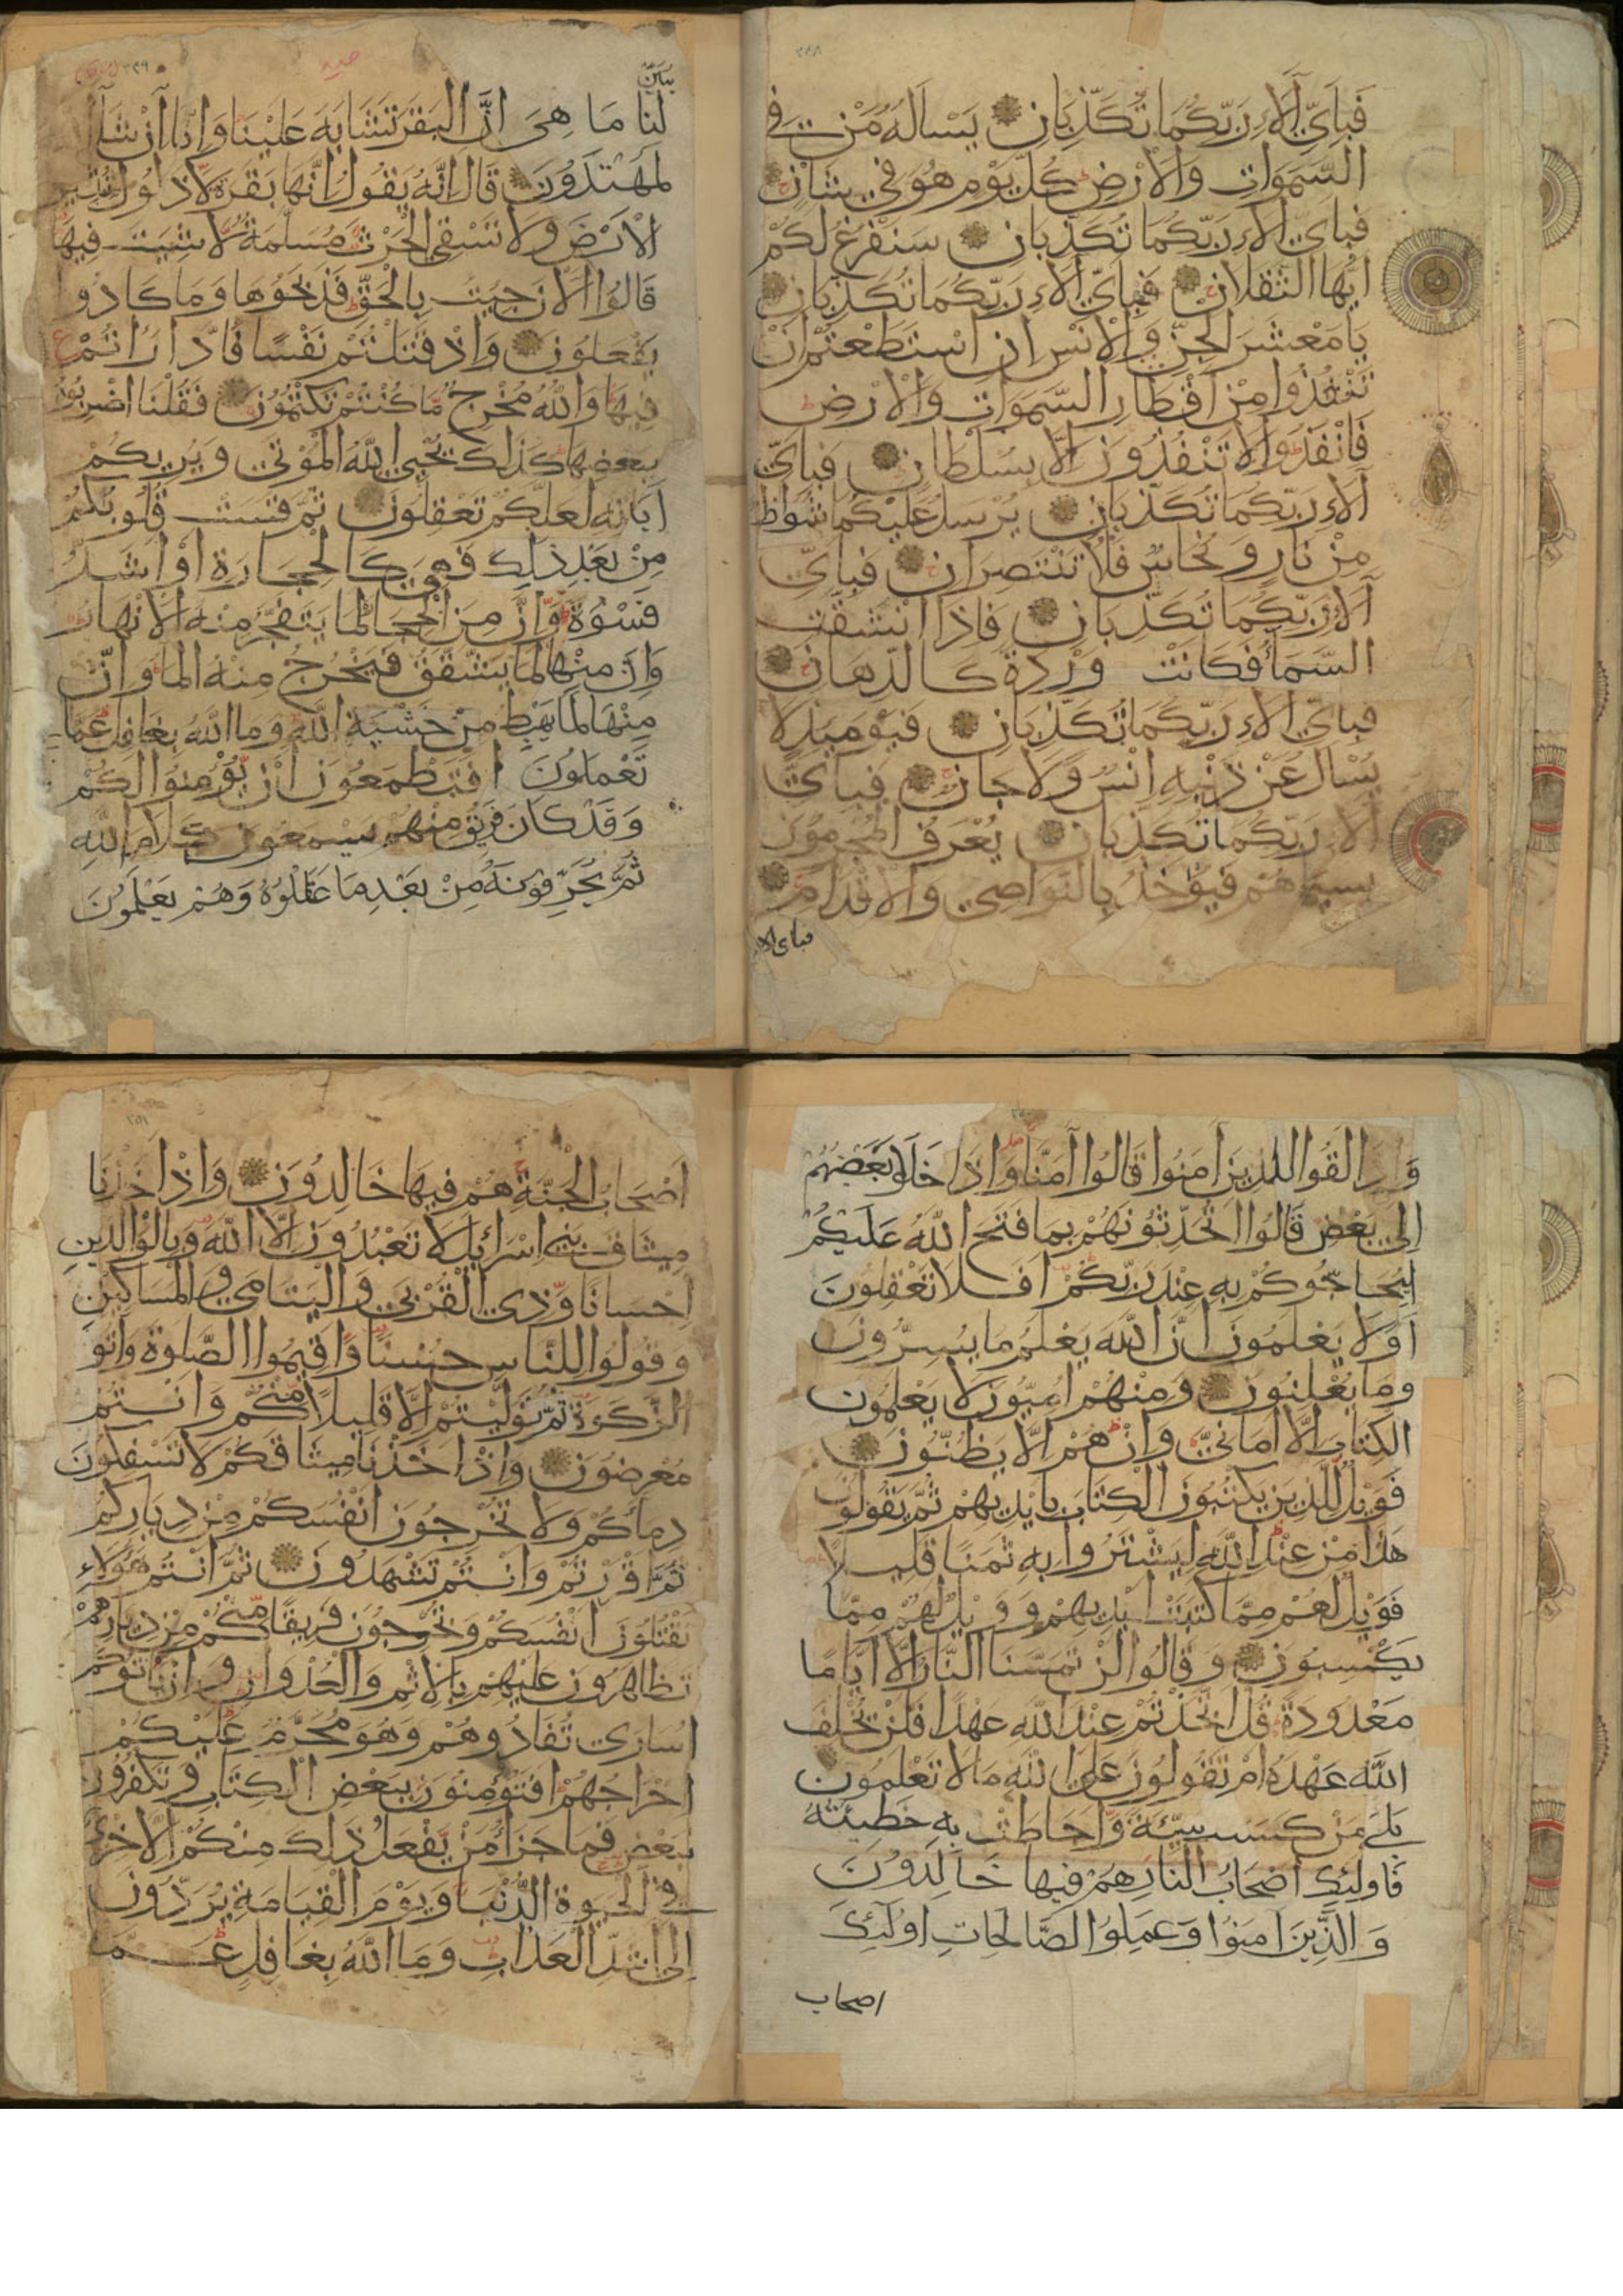 ٢٤٨
فَبِاَيِّ آلَاءِ رَبِّكُمَا تُكَذِّبَانِ يَسْاَلُهُ مَنْ فِي
السَّمَوَاتِ وَالْاَرْضِ كُلَّ يَوْمٍ هُوَ فِي شَانٍ
فَبِاَيِّ آلَاءِ رَبِّكُمَا تُكَذِّبَانِ سَنَفْرُغُ لَكُمْ
اَيُّهَا الثَّقَلَانِ فَبِاَيِّ آلَاءِ رَبِّكُمَا تُكَذِّبَانِ
يَا مَعْشَرَ الْجِنِّ وَالْاِنْسِ اِنِ اسْتَطَعْتُمْ اَنْ
تَنْفُذُوا مِنْ اَقْطَارِ السَّمَوَاتِ وَالْاَرْضِ
فَانْفُذُوا لَا تَنْفُذُونَ اِلَّا بِسُلْطَانٍ فَبِاَيِّ
آلَاءِ رَبِّكُمَا تُكَذِّبَانِ يُرْسَلُ عَلَيْكُمَا شُوَاظٌ
مِنْ نَارٍ وَنُحَاسٌ فَلَا تَنْتَصِرَانِ فَبِاَيِّ
آلَاءِ رَبِّكُمَا تُكَذِّبَانِ فَاِذَا انْشَقَّتِ
السَّمَاءُ فَكَانَتْ وَرْدَةً كَالدِّهَانِ
فَبِاَيِّ آلَاءِ رَبِّكُمَا تُكَذِّبَانِ فَيَوْمَئِذٍ لَا
يُسْاَلُ عَنْ ذَنْبِهِ اِنْسٌ وَلَا جَانٌّ فَبِاَيِّ
آلَاءِ رَبِّكُمَا تُكَذِّبَانِ يُعْرَفُ الْمُجْرِمُونَ
بِسِيمَاهُمْ فَيُؤْخَذُ بِالنَّوَاصِي وَالْاَقْدَامِ
فباى الاء
٢٤٩
يُبَيِّنْ
لَنَا مَا هِيَ اِنَّ الْبَقَرَ تَشَابَهَ عَلَيْنَا وَاِنَّا اِنْ شَاءَ
لَمُهْتَدُونَ قَالَ اِنَّهُ يَقُولُ اِنَّهَا بَقَرَةٌ لَا ذَلُولٌ تُثِيرُ
الْاَرْضَ وَلَا تَسْقِي الْحَرْثَ مُسَلَّمَةٌ لَا شِيَةَ فِيهَا
قَالُوا الْآنَ جِئْتَ بِالْحَقِّ فَذَبَحُوهَا وَمَا كَادُوا
يَفْعَلُونَ وَاِذْ قَتَلْتُمْ نَفْسًا فَادَّارَاْتُمْ
فِيهَا وَاللَّهُ مُخْرِجٌ مَا كُنْتُمْ تَكْتُمُونَ فَقُلْنَا اضْرِبُوهُ
بِبَعْضِهَا كَذَلِكَ يُحْيِي اللَّهُ الْمَوْتَى وَيُرِيكُمْ
آيَاتِهِ لَعَلَّكُمْ تَعْقِلُونَ ثُمَّ قَسَتْ قُلُوبُكُمْ
مِنْ بَعْدِ ذَلِكَ فَهِيَ كَالْحِجَارَةِ اَوْ اَشَدُّ
قَسْوَةً وَاِنَّ مِنَ الْحِجَارَةِ لَمَا يَتَفَجَّرُ مِنْهُ الْاَنْهَارُ
وَاِنَّ مِنْهَا لَمَا يَشَّقَّقُ فَيَخْرُجُ مِنْهُ الْمَاءُ وَاِنَّ
مِنْهَا لَمَا يَهْبِطُ مِنْ خَشْيَةِ اللَّهِ وَمَا اللَّهُ بِغَافِلٍ عَمَّا
تَعْمَلُونَ اَفَتَطْمَعُونَ اَنْ يُؤْمِنُوا لَكُمْ
وَقَدْ كَانَ فَرِيقٌ مِنْهُمْ يَسْمَعُونَ كَلَامَ اللَّهِ
ثُمَّ يُحَرِّفُونَهُ مِنْ بَعْدِ مَا عَقَلُوهُ وَهُمْ يَعْلَمُونَ
٢٥٠
وَاِذَا لَقُوا الَّذِينَ آمَنُوا قَالُوا آمَنَّا وَاِذَا خَلَا بَعْضُهُمْ
اِلَى بَعْضٍ قَالُوا اَتُحَدِّثُونَهُمْ بِمَا فَتَحَ اللَّهُ عَلَيْكُمْ
لِيُحَاجُّوكُمْ بِهِ عِنْدَ رَبِّكُمْ اَفَلَا تَعْقِلُونَ
اَوَلَا يَعْلَمُونَ اَنَّ اللَّهَ يَعْلَمُ مَا يُسِرُّونَ
وَمَا يُعْلِنُونَ وَمِنْهُمْ اُمِّيُّونَ لَا يَعْلَمُونَ
الْكِتَابَ اِلَّا اَمَانِيَّ وَاِنْ هُمْ اِلَّا يَظُنُّونَ
فَوَيْلٌ لِلَّذِينَ يَكْتُبُونَ الْكِتَابَ بِاَيْدِيهِمْ ثُمَّ يَقُولُونَ
هَذَا مِنْ عِنْدِ اللَّهِ لِيَشْتَرُوا بِهِ ثَمَنًا قَلِيلًا
فَوَيْلٌ لَهُمْ مِمَّا كَتَبَتْ اَيْدِيهِمْ وَوَيْلٌ لَهُمْ مِمَّا
يَكْسِبُونَ وَقَالُوا لَنْ تَمَسَّنَا النَّارُ اِلَّا اَيَّامًا
مَعْدُودَةً قُلْ اَتَّخَذْتُمْ عِنْدَ اللَّهِ عَهْدًا فَلَنْ يُخْلِفَ
اللَّهُ عَهْدَهُ اَمْ تَقُولُونَ عَلَى اللَّهِ مَا لَا تَعْلَمُونَ
بَلَى مَنْ كَسَبَ سَيِّئَةً وَاَحَاطَتْ بِهِ خَطِيئَتُهُ
فَاُولَئِكَ اَصْحَابُ النَّارِ هُمْ فِيهَا خَالِدُونَ
وَالَّذِينَ آمَنُوا وَعَمِلُوا الصَّالِحَاتِ اُولَئِكَ
اصحاب
٢٥١
اَصْحَابُ الْجَنَّةِ هُمْ فِيهَا خَالِدُونَ وَاِذْ اَخَذْنَا
مِيثَاقَ بَنِي اِسْرَائِيلَ لَا تَعْبُدُونَ اِلَّا اللَّهَ وَبِالْوَالِدَيْنِ
اِحْسَانًا وَذِي الْقُرْبَى وَالْيَتَامَى وَالْمَسَاكِينِ
وَقُولُوا لِلنَّاسِ حُسْنًا وَاَقِيمُوا الصَّلَوةَ وَآتُوا
الزَّكَوةَ ثُمَّ تَوَلَّيْتُمْ اِلَّا قَلِيلًا مِنْكُمْ وَاَنْتُمْ
مُعْرِضُونَ وَاِذْ اَخَذْنَا مِيثَاقَكُمْ لَا تَسْفِكُونَ
دِمَاءَكُمْ وَلَا تُخْرِجُونَ اَنْفُسَكُمْ مِنْ دِيَارِكُمْ
ثُمَّ اَقْرَرْتُمْ وَاَنْتُمْ تَشْهَدُونَ ثُمَّ اَنْتُمْ هَؤُلَاءِ
تَقْتُلُونَ اَنْفُسَكُمْ وَتُخْرِجُونَ فَرِيقًا مِنْكُمْ مِنْ دِيَارِهِمْ
تَظَاهَرُونَ عَلَيْهِمْ بِالْاِثْمِ وَالْعُدْوَانِ وَاِنْ يَاْتُوكُمْ
اُسَارَى تُفَادُوهُمْ وَهُوَ مُحَرَّمٌ عَلَيْكُمْ
اِخْرَاجُهُمْ اَفَتُؤْمِنُونَ بِبَعْضِ الْكِتَابِ وَتَكْفُرُونَ
بِبَعْضٍ فَمَا جَزَاءُ مَنْ يَفْعَلُ ذَلِكَ مِنْكُمْ اِلَّا خِزْيٌ
فِي الْحَيَوةِ الدُّنْيَا وَيَوْمَ الْقِيَامَةِ يُرَدُّونَ
اِلَى اَشَدِّ الْعَذَابِ وَمَا اللَّهُ بِغَافِلٍ عَمَّا